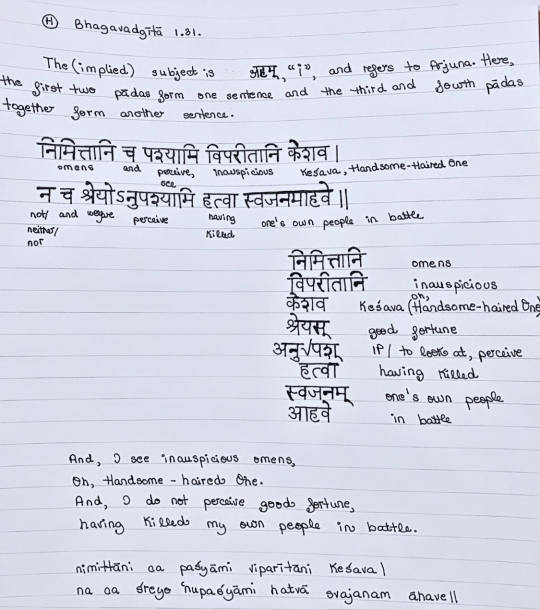 Ⓗ Bhagavadgītā 1.31.
The (implied) subject is अहम्, "I", and refers to Arjuna. Here,
the first two pādas form one sentence and the third and fourth pādas
together form another sentence.
निमित्तानि च पश्यामि विपरीतानि केशव।
omens and perceive, inauspicious Keśava, Handsome-Haired One
see
न च श्रेयोऽनुपश्यामि हत्वा स्वजनमाहवे॥
not/ and perceive having one's own people in battle
neither/ killed
nor
निमित्तानि omens
विपरीतानि inauspicious
केशव Keśava (Oh, Handsome-haired One)
श्रेयस् good fortune
अनु√पश् IP/ to look at, perceive
हत्वा having killed
स्वजनम् one's own people
आहवे in battle
And, I see inauspicious omens,
Oh, Handsome-haired One.
And, I do not perceive good fortune,
having killed my own people in battle.
nimittāni ca paśyāmi viparītāni Keśava|
na ca śreyo 'nupaśyāmi hatvā svajanam āhave||